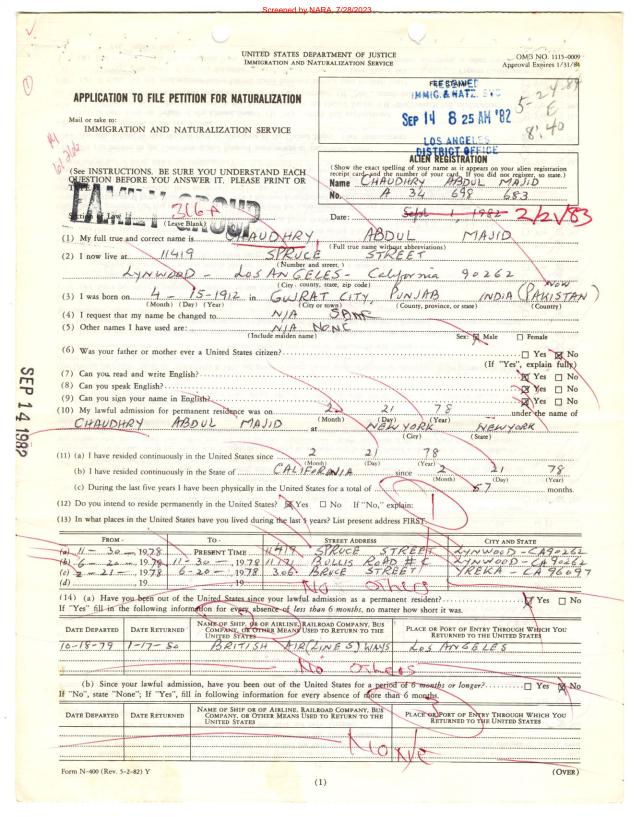 Screened by NARA, 7/28/2023
UNITED STATES DEPARTMENT OF JUSTICE
IMMIGRATION AND NATURALIZATION SERVICE
OMB NO. 1115-0009
Approval Expires 1/31/84
APPLICATION TO FILE PETITION FOR NATURALIZATION
FEE STAMPED
IMMIG. & NATZ. SVC
SEP 14 8 25 AM '82
LOS ANGELES
DISTRICT OFFICE
5-24-84
E
8:40
Mail or take to:
IMMIGRATION AND NATURALIZATION SERVICE
ALIEN REGISTRATION
(Show the exact spelling of your name as it appears on your alien registration
receipt card and the number of your card. If you did not register, so state.)
Name CHAUDHRY ABDUL MAJID
No. A 34 698 683
(See INSTRUCTIONS. BE SURE YOU UNDERSTAND EACH
QUESTION BEFORE YOU ANSWER IT. PLEASE PRINT OR
TYPE.)
FAMILY GROUP
Section of Law 316A
(Leave Blank)
Date: Sept 1, 1982 2/21/83
(1) My full true and correct name is CHAUDHRY, ABDUL MAJID
(Full true name without abbreviations)
(2) I now live at 11419 SPRUCE STREET
(Number and street,)
LYNWOOD - LOS ANGELES - California 90262
(City, county, state, zip code)
(3) I was born on 4 - 15-1912 in GUJRAT CITY, PUNJAB INDIA (NOW PAKISTAN)
(Month) (Day) (Year) (City or town) (County, province, or state) (Country)
(4) I request that my name be changed to N/A SAME
(5) Other names I have used are: N/A NONE
(Include maiden name) Sex: ☒ Male ☐ Female
(6) Was your father or mother ever a United States citizen? ☐ Yes ☒ No
(If "Yes", explain fully)
(7) Can you read and write English? ☒ Yes ☐ No
(8) Can you speak English? ☒ Yes ☐ No
(9) Can you sign your name in English? ☒ Yes ☐ No
(10) My lawful admission for permanent residence was on 2 21 78 under the name of
(Month) (Day) (Year)
CHAUDHRY ABDUL MAJID at NEW YORK NEW YORK
(City) (State)
SEP 14 1982
(11) (a) I have resided continuously in the United States since 2 21 78
(Month) (Day) (Year)
(b) I have resided continuously in the State of CALIFORNIA since 2 21 78
(Month) (Day) (Year)
(c) During the last five years I have been physically in the United States for a total of 57 months.
(12) Do you intend to reside permanently in the United States? ☒ Yes ☐ No If "No," explain:
(13) In what places in the United States have you lived during the last 5 years? List present address FIRST.
FROM - TO - STREET ADDRESS CITY AND STATE
(a) 11 - 30 -, 1978 PRESENT TIME 11419 SPRUCE STREET LYNWOOD - CA 90262
(b) 6 - 20 -, 1978 11 - 30 -, 1978 11171 BULLIS ROAD # C LYNWOOD - CA 90262
(c) 2 - 21 -, 1978 6-20 -, 1978 306 BRUCE STREET YREKA - CA 96097
(d) , 19 , 19
No Others
(14) (a) Have you been out of the United States since your lawful admission as a permanent resident? ☒ Yes ☐ No
If "Yes" fill in the following information for every absence of less than 6 months, no matter how short it was.
DATE DEPARTED DATE RETURNED NAME OF SHIP, OR OF AIRLINE, RAILROAD COMPANY, BUS COMPANY, OR OTHER MEANS USED TO RETURN TO THE UNITED STATES PLACE OR PORT OF ENTRY THROUGH WHICH YOU RETURNED TO THE UNITED STATES
10-18-79 1-17-80 BRITISH AIR(LINES) WAYS LOS ANGELES
No Others
(b) Since your lawful admission, have you been out of the United States for a period of 6 months or longer? ☐ Yes ☒ No
If "No", state "None"; If "Yes", fill in following information for every absence of more than 6 months.
DATE DEPARTED DATE RETURNED NAME OF SHIP OR OF AIRLINE, RAILROAD COMPANY, BUS COMPANY, OR OTHER MEANS USED TO RETURN TO THE UNITED STATES PLACE OR PORT OF ENTRY THROUGH WHICH YOU RETURNED TO THE UNITED STATES
None
Form N-400 (Rev. 5-2-82) Y
(1)
(OVER)